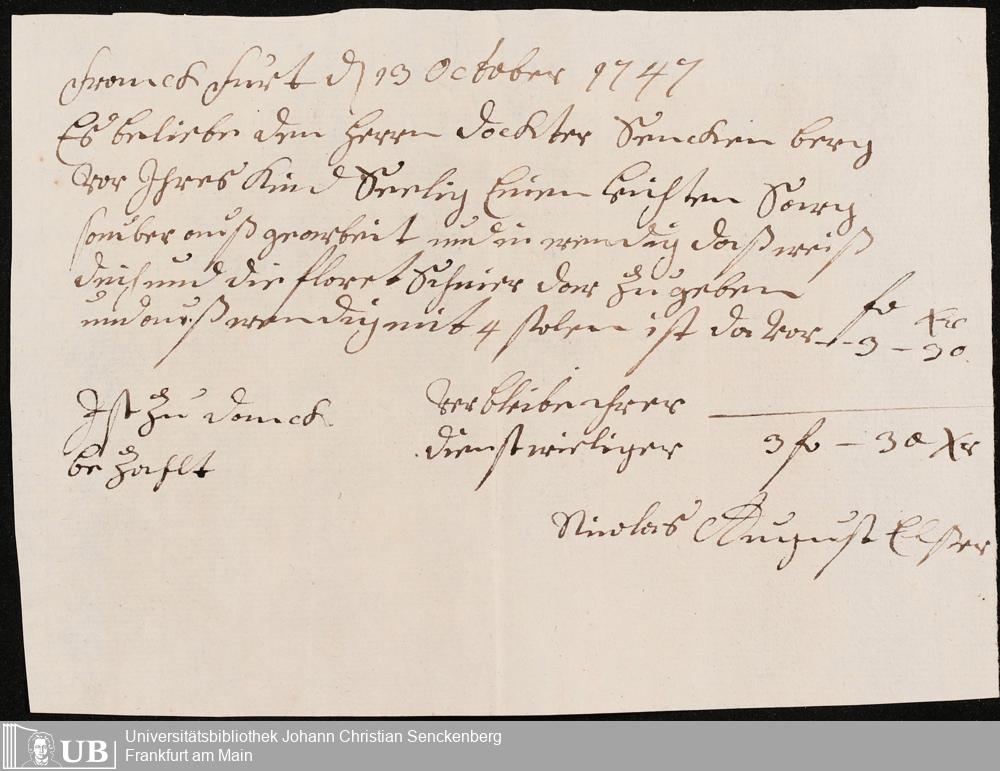 Franck furt d 13 October 1747
Es beliebe dem Herrn Dockter Sencken berg
vor Ihres Kind Seelig Einen leichten Sarg
sauber auß gearbeit und in wendig daß weiß
duch und die floret Schnier dar zu geben
und außwendig mit 4 stolen ist da vor
fl Xr
3 – 30
Ist zu danck
be zahlt
Verbleibe ihrer
dienstwieliger
3 fl – 30 Xr
Nicolas August Elster
UB
Universitätsbibliothek Johann Christian Senckenberg
Frankfurt am Main